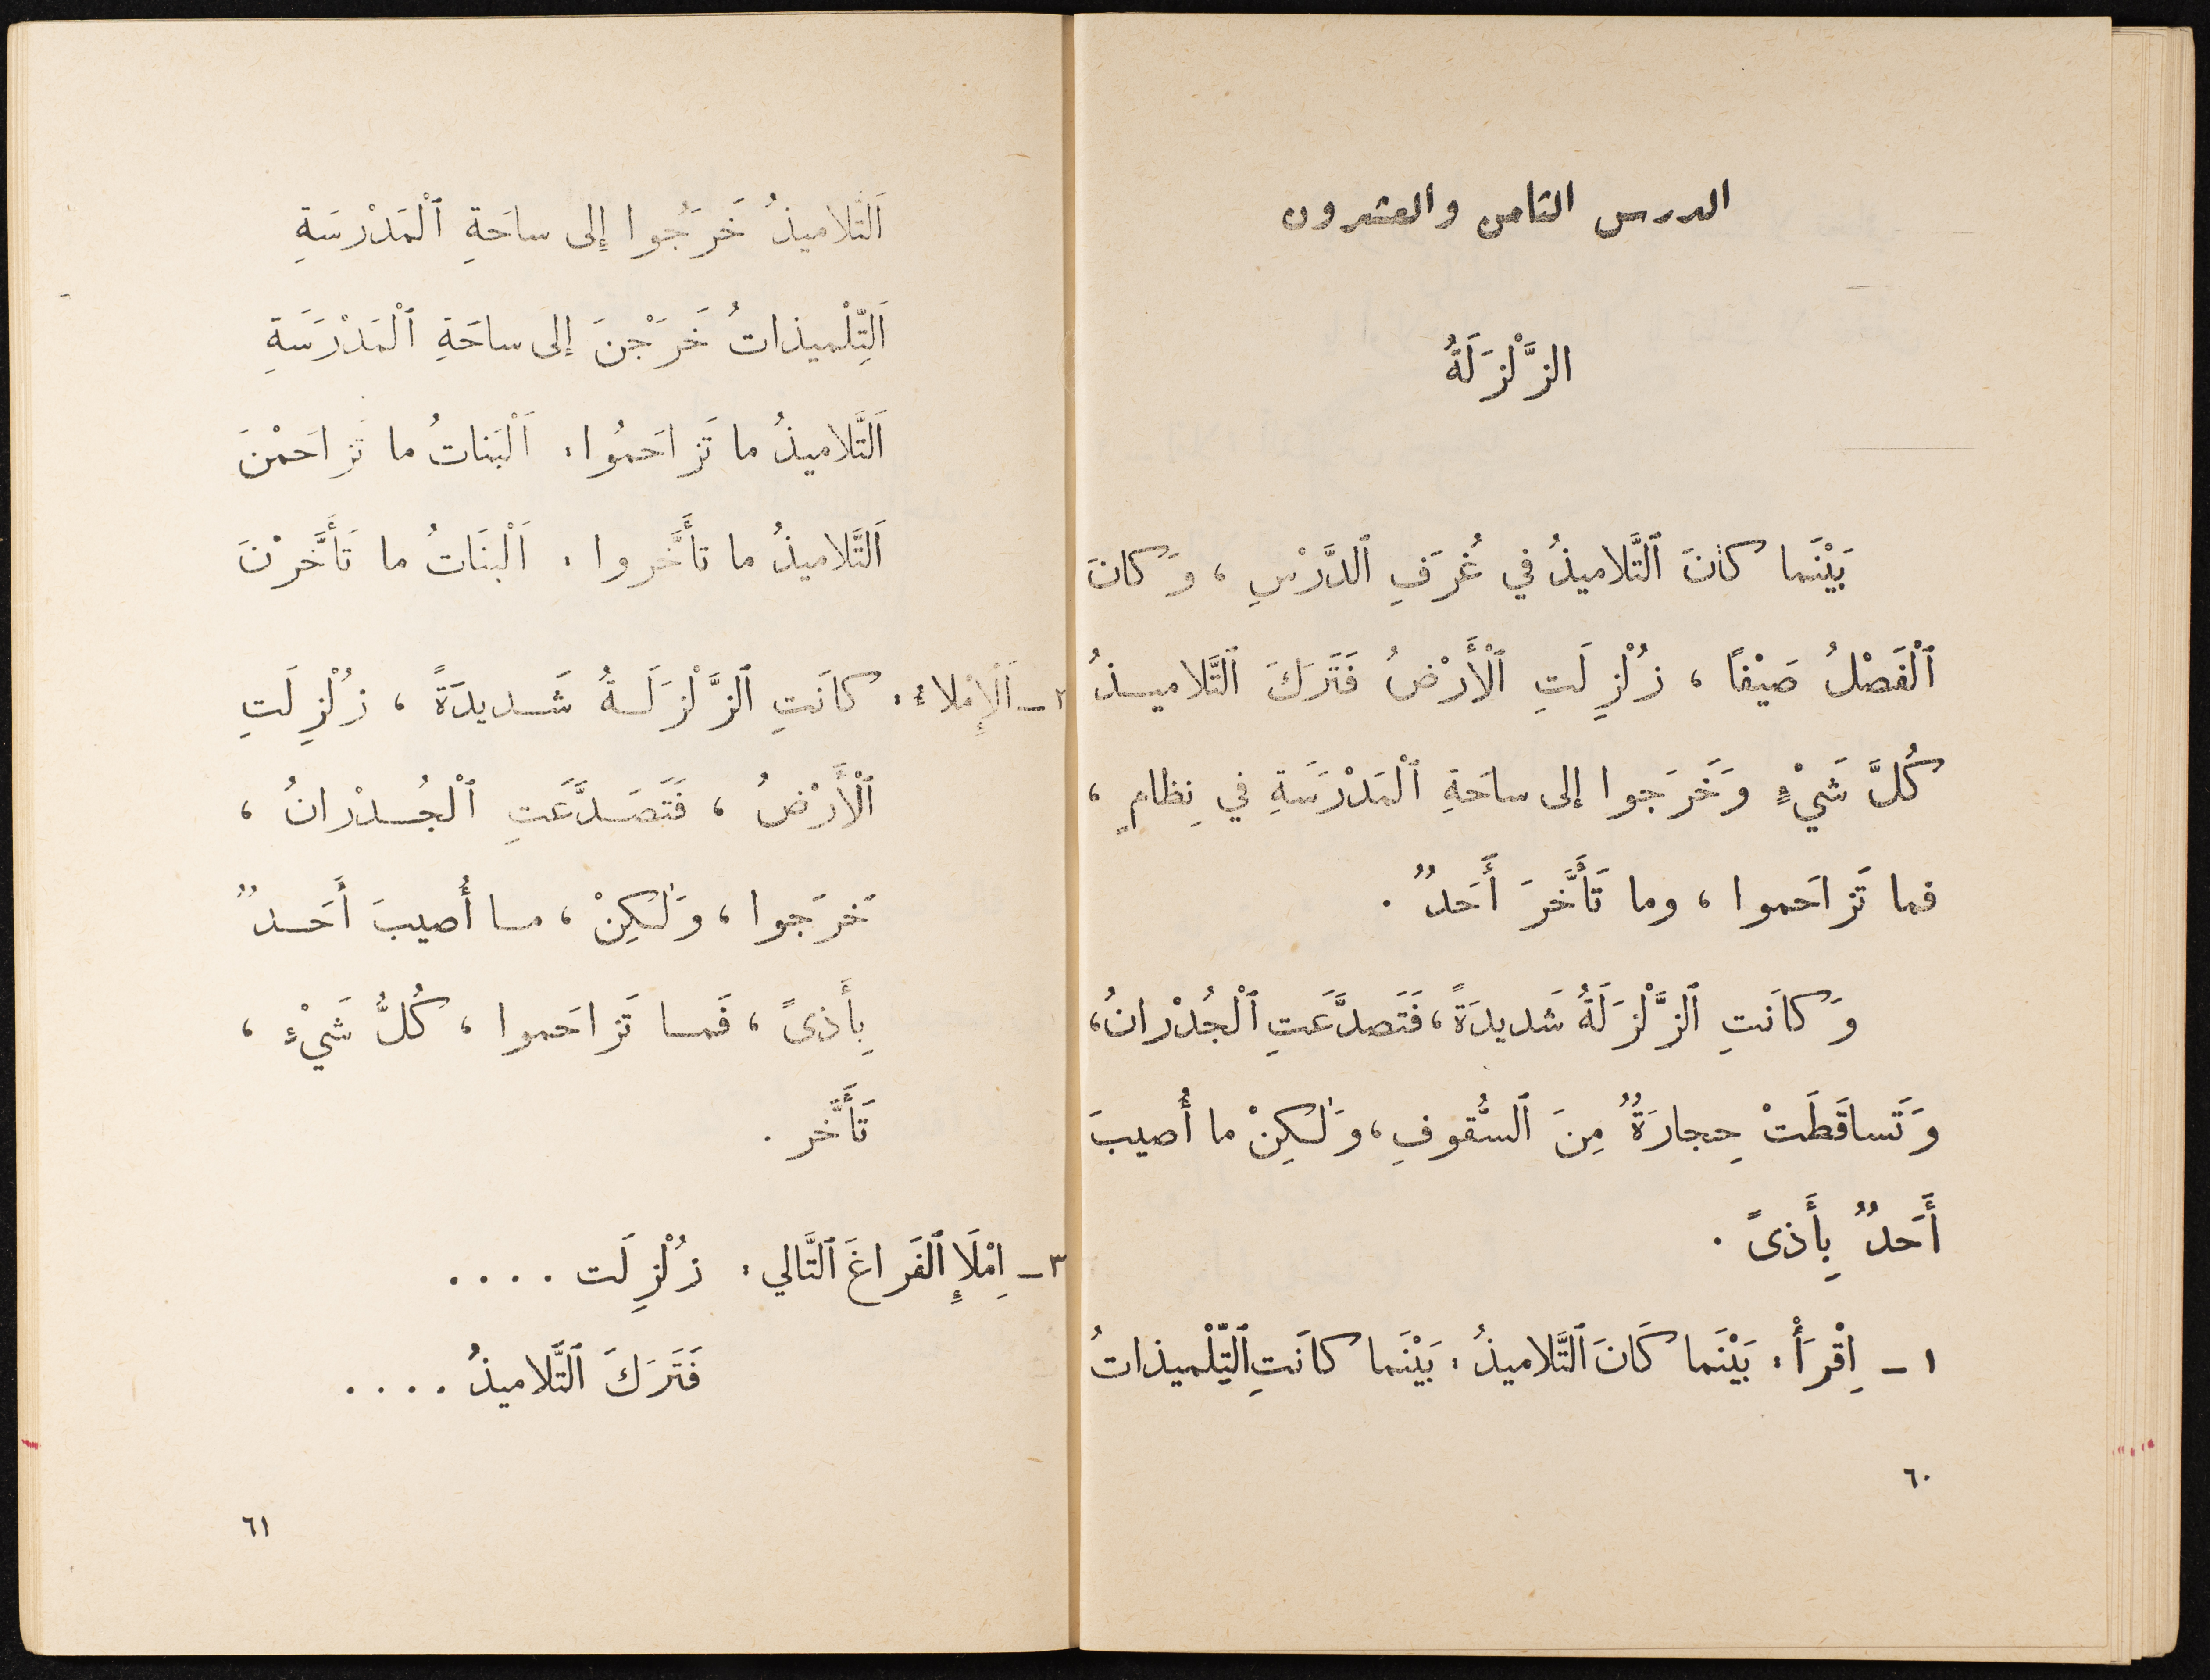 الدرس الثامن والعشرون
الزَّلْزَلَةُ
بَيْنَما كانَ ٱلتَّلاميذُ في غُرَفِ ٱلدَّرْسِ ، وَكانَ
ٱلْفَصْلُ صَيْفًا ، زُلْزِلَتِ ٱلْأَرْضُ فَتَرَكَ ٱلتَّلاميذُ
كُلَّ شَيْءٍ وَخَرَجوا إلى ساحَةِ ٱلْمَدْرَسَةِ في نِظامٍ ،
فما تَزاحَموا ، وما تَأَخَّرَ أَحَدٌ .
وَكانَتِ ٱلزَّلْزَلَةُ شَديدَةً ، فَتَصدَّعَتِ ٱلْجُدْرانُ ،
وَتَساقَطَتْ حِجارَةٌ مِنَ ٱلسُّقوفِ ، وَلٰكِنْ ما أُصيبَ
أَحَدٌ بِأَذىً .
١ - اِقْرَأْ : بَيْنَما كَانَ ٱلتَّلاميذُ : بَيْنَما كانَتِ ٱلتِّلْميذاتُ
٦٠
اَلتَّلاميذُ خَرَجُوا إلى ساحَةِ ٱلْمَدْرَسَةِ
اَلتِّلْميذاتُ خَرَجْنَ إلى ساحَةِ ٱلْمَدْرَسَةِ
اَلتَّلاميذُ ما تَزاحَمُوا : اَلْبَناتُ ما تَزاحَمْنَ
اَلتَّلاميذُ ما تأَخَّروا : اَلْبنَاتُ ما تَأَخَّرْنَ
٢ - اَلْإِمْلاءُ : كانَتِ ٱلزَّلْزَلَةُ شَديدَةً ، زُلْزِلَتِ
ٱلْأَرْضُ ، فَتَصَدَّعَتِ ٱلْجُدْرانُ ،
خَرَجوا ، وَلٰكِنْ ، ما أُصيبَ أَحَدٌ
بِأَذىً ، فَما تَزاحَموا ، كُلُّ شَيْءٍ ،
تَأَخَّر .
٣ - اِمْلَإِ ٱلفَراغَ ٱلتَّالي : زُلْزِلَت ....
فَتَرَكَ ٱلتَّلاميذُ ....
٦١